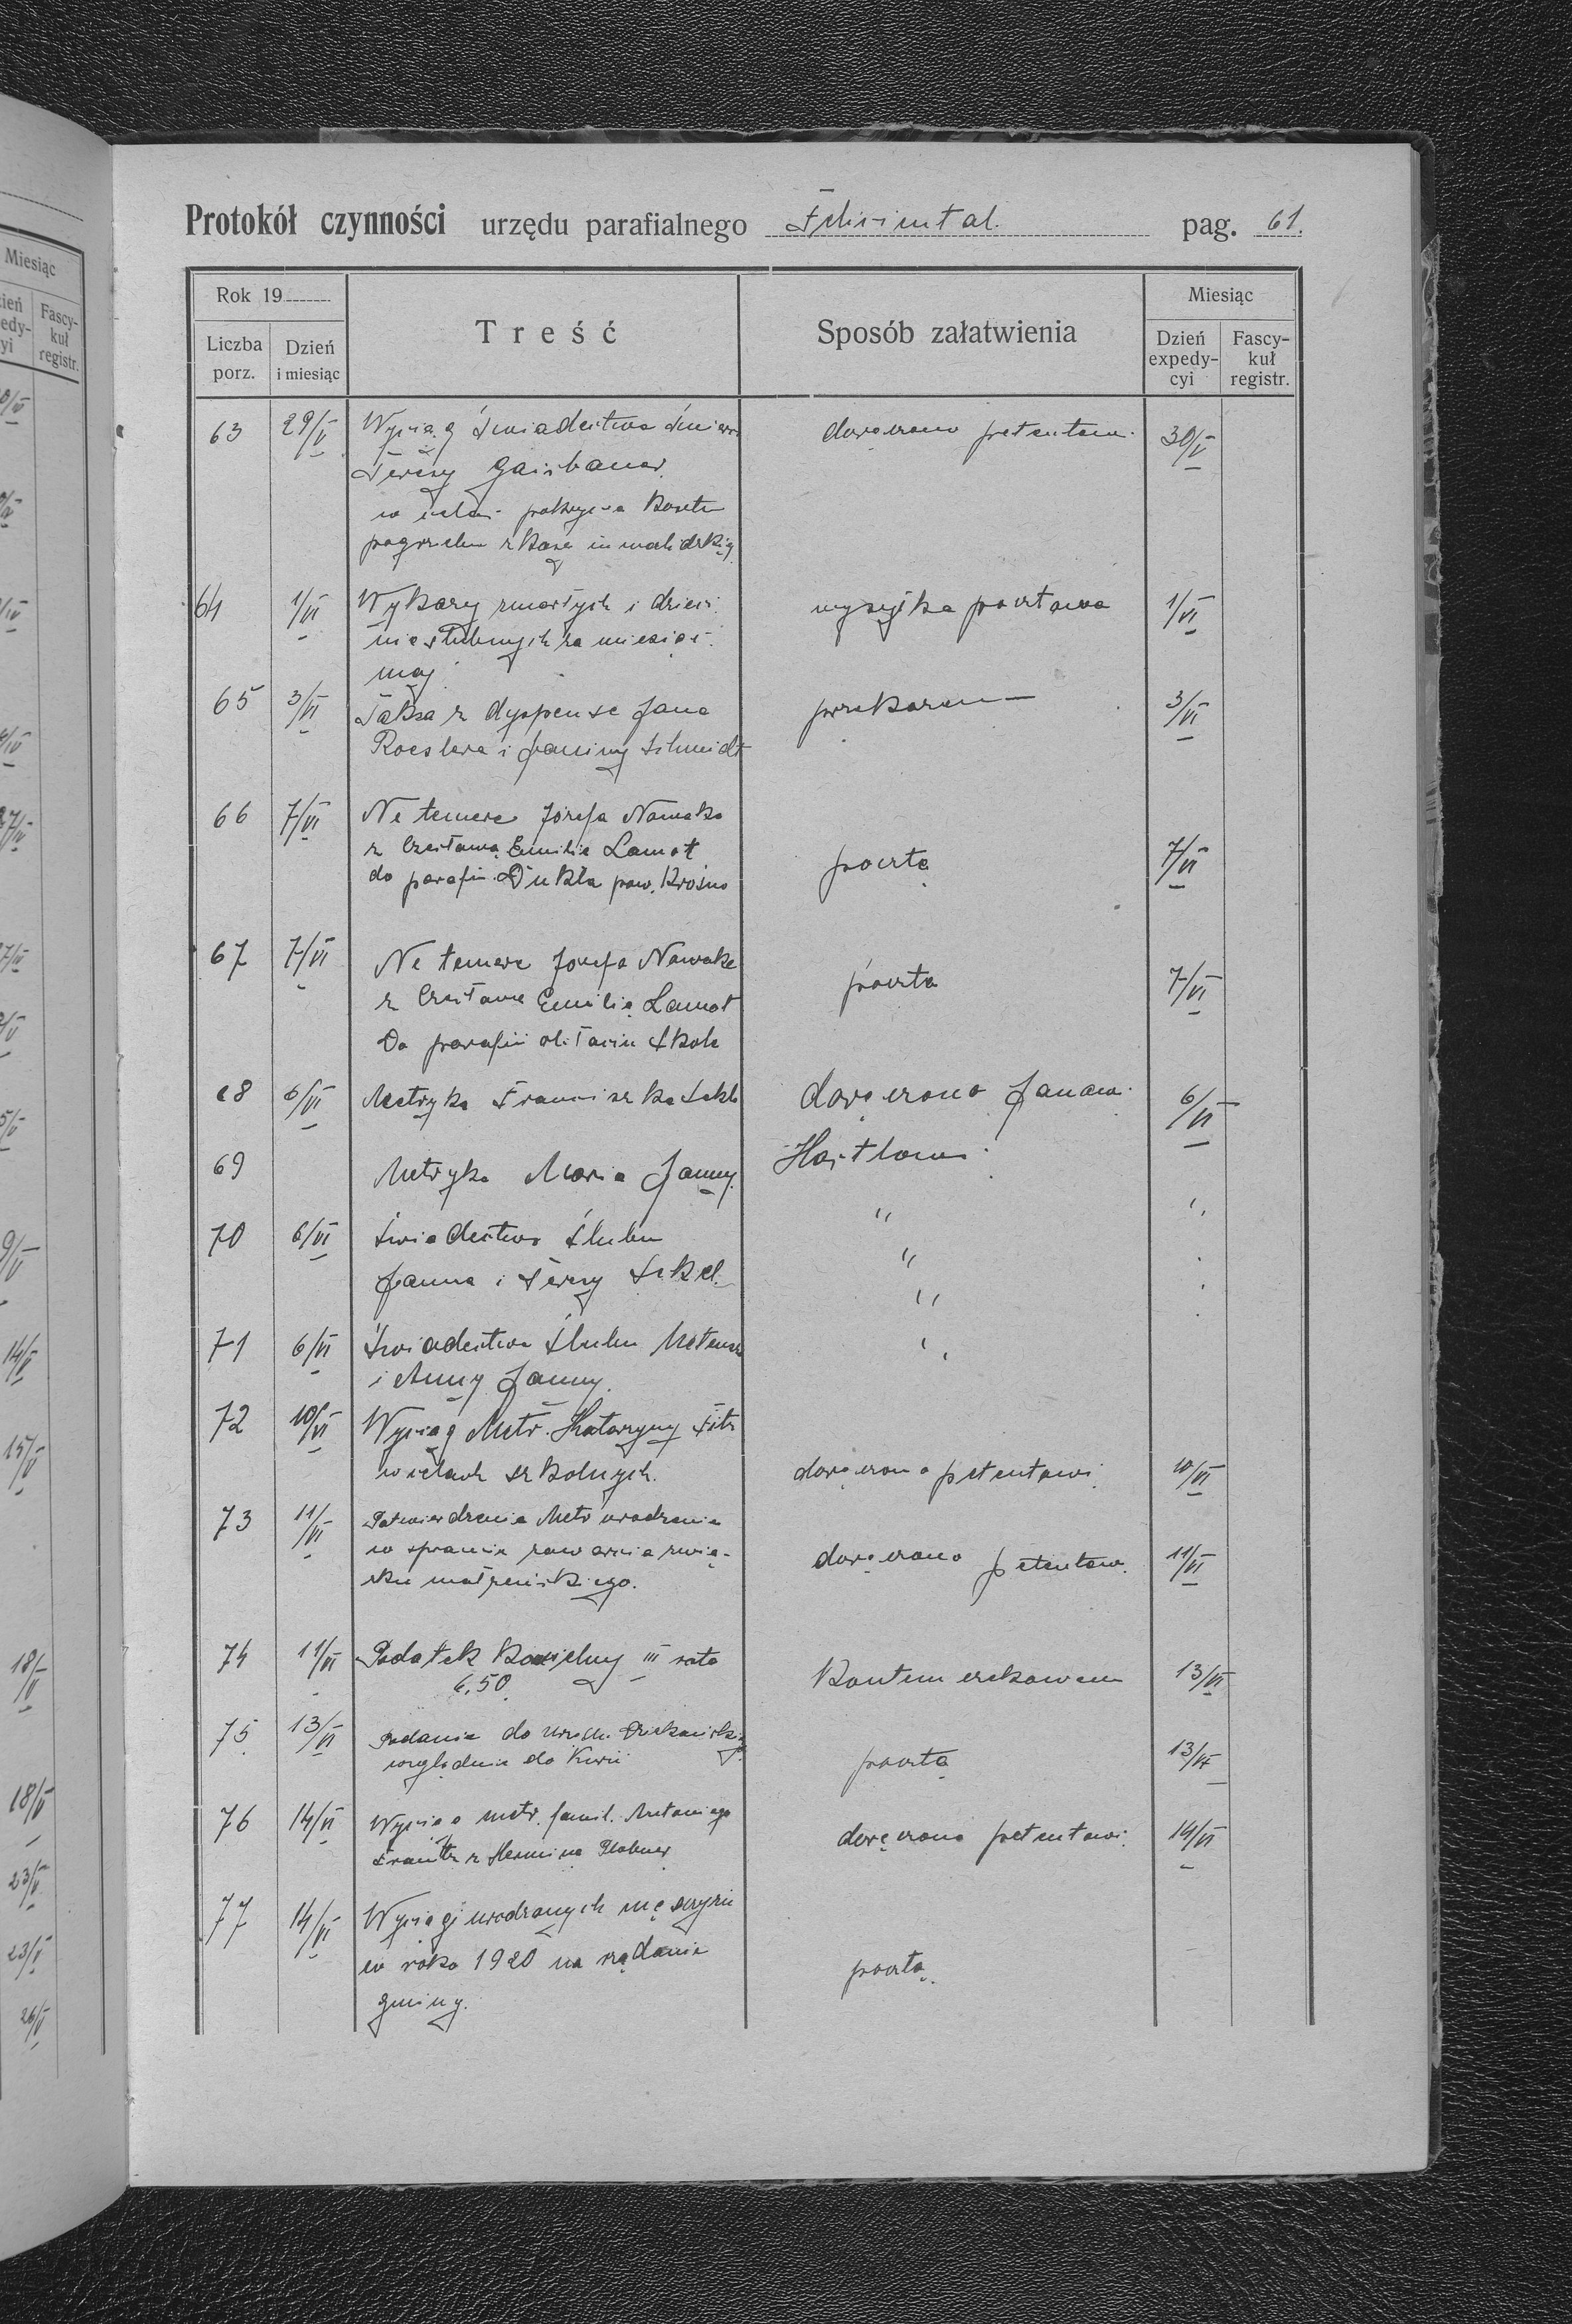 Protokół czynności urzędu parafialnego Felicintal. pag. 61.
Rok 19
Treść
Sposób załatwienia
Miesiąc
Liczba porz.
Dzień i miesiąc
Dzień expedycyi
Fascykuł registr.
63 29/V Wyciąg świadectwa śmierci doręczono petentowi 30/V
Teresy Gaisbauer
w celu pokrycia kosztu
pogrzebu z kasą inwalidzkiej
64 1/VI Wykazy zmarłych i dzieci wysyłka pocztowa 1/VI
nieślubnych za miesiąc
maj
65 3/VI Taksa z dyspensę Jana przekazem 3/VI
Roeslera i Janiny Schmidt
66 7/VI Ne temere Józefa Nowaka
z Czesławą Emilią Lamot pocztą 7/VI
do parafii Dukla pow. Krosno
67 7/VI Ne temere Józefa Nowaka pocztą 7/VI
z Czesławą Emilią Lamot
Do parafii Skole
68 6/VI Metryka Franciszka doręczono Janowi 6/VI
69 Metryka Maria Janny
70 6/VI Świadectwo ślubu "
Janna i Teresy "
71 6/VI Świadectwo ślubu
i Anny Janny
72 10/VI Wyciąg Metr. Katarzyny
w celach szkolnych. doręczono petentowi 10/VI
73 11/VI Potwierdzenie Metr urodzenia
w sprawie zawarcia zwią- doręczono petentow. 11/VI
zku małżeńskiego.
74 11/VI Podatek III rata Kontem czekowem 13/VI
6.50
75 13/VI Podanie do Urzędu Dziekańskiego
względnie do Kurii pocztą 13/VI
76 14/VI Wyciąg metr. famil. Antoniego doręczono petentowi 14/VI
z Hermina
77 14/VI Wyciągi urodzonych mężczyzn
w roku 1920 na żądanie pocztą.
gminy.